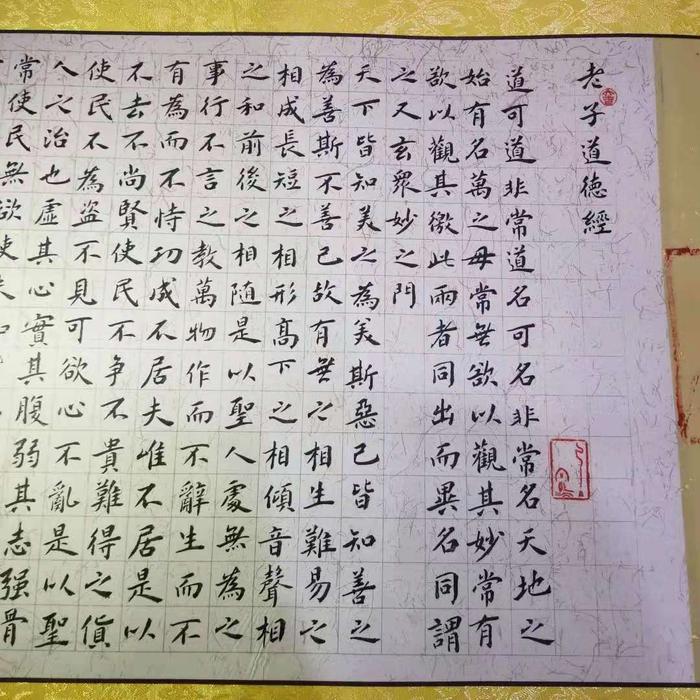 老子道德經
道可道非常道名可名非常名天地之
始有名萬之母常無欲以觀其妙常有
欲以觀其徼此兩者同出而異名同謂
之又玄眾妙之門
天下皆知美之為美斯惡已皆知善之
為善斯不善已故有無之相生難易之
相成長短之相形高下之相傾音聲相
之和前後之相隨是以聖人處無為之
事行不言之教萬物作而不辭生而不
有為而不恃功成不居夫唯不居是以
不去不尚賢使民不争不貴難得之貨
使民不為盜不見可欲心不亂是以聖
人之治也虛其心實其腹弱其志强骨
常使民無欲使